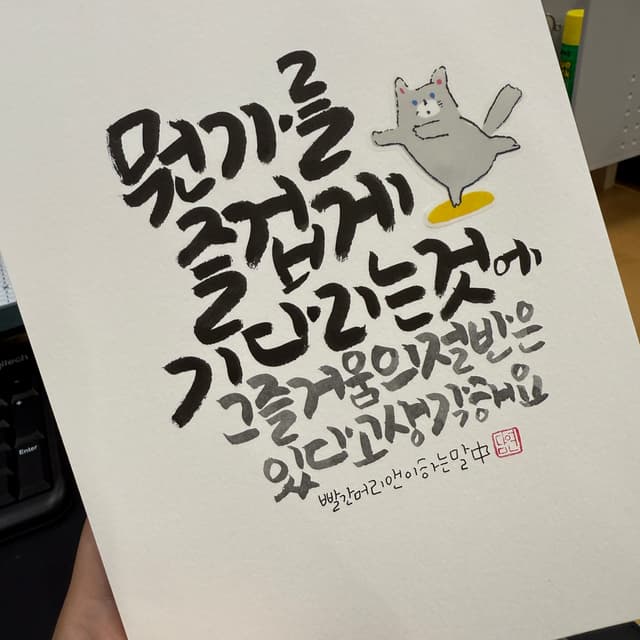 뭔가를
즐겁게
기다리는것에
그즐거움의절반은
있다고생각해요
빨간머리앤이하는말中
Enter